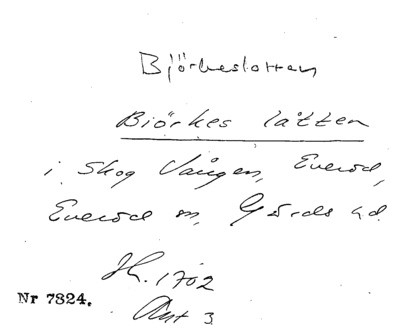 Björkeslotten
Biörkes låtten
i Skog Vången, Everöd,
Everöd sn, Gärds hd.
Jh. 1702
Akt 3
Nr 7824.